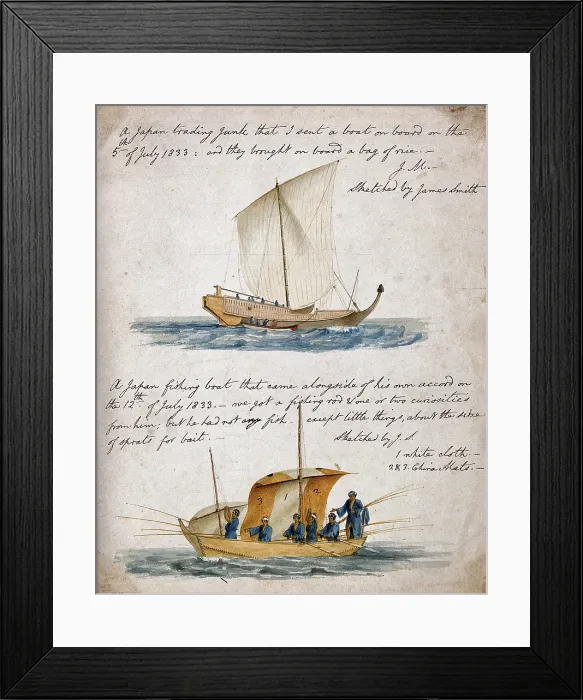 A Japan trading Junk that I sent a boat on board on the
5th of July 1833: and they brought on board a bag of rice. —
J. M. —
Sketched by James Smith
A Japan fishing boat that came alongside of his own accord on
the 12th of July 1833. — we got a fishing rod & one or two curiosities
from him; but he had not any fish except little things, about the size
of sprats for bait. —
Sketched by J. S.
1 white cloth —
2 & 3. China Mats. —
3 1 2